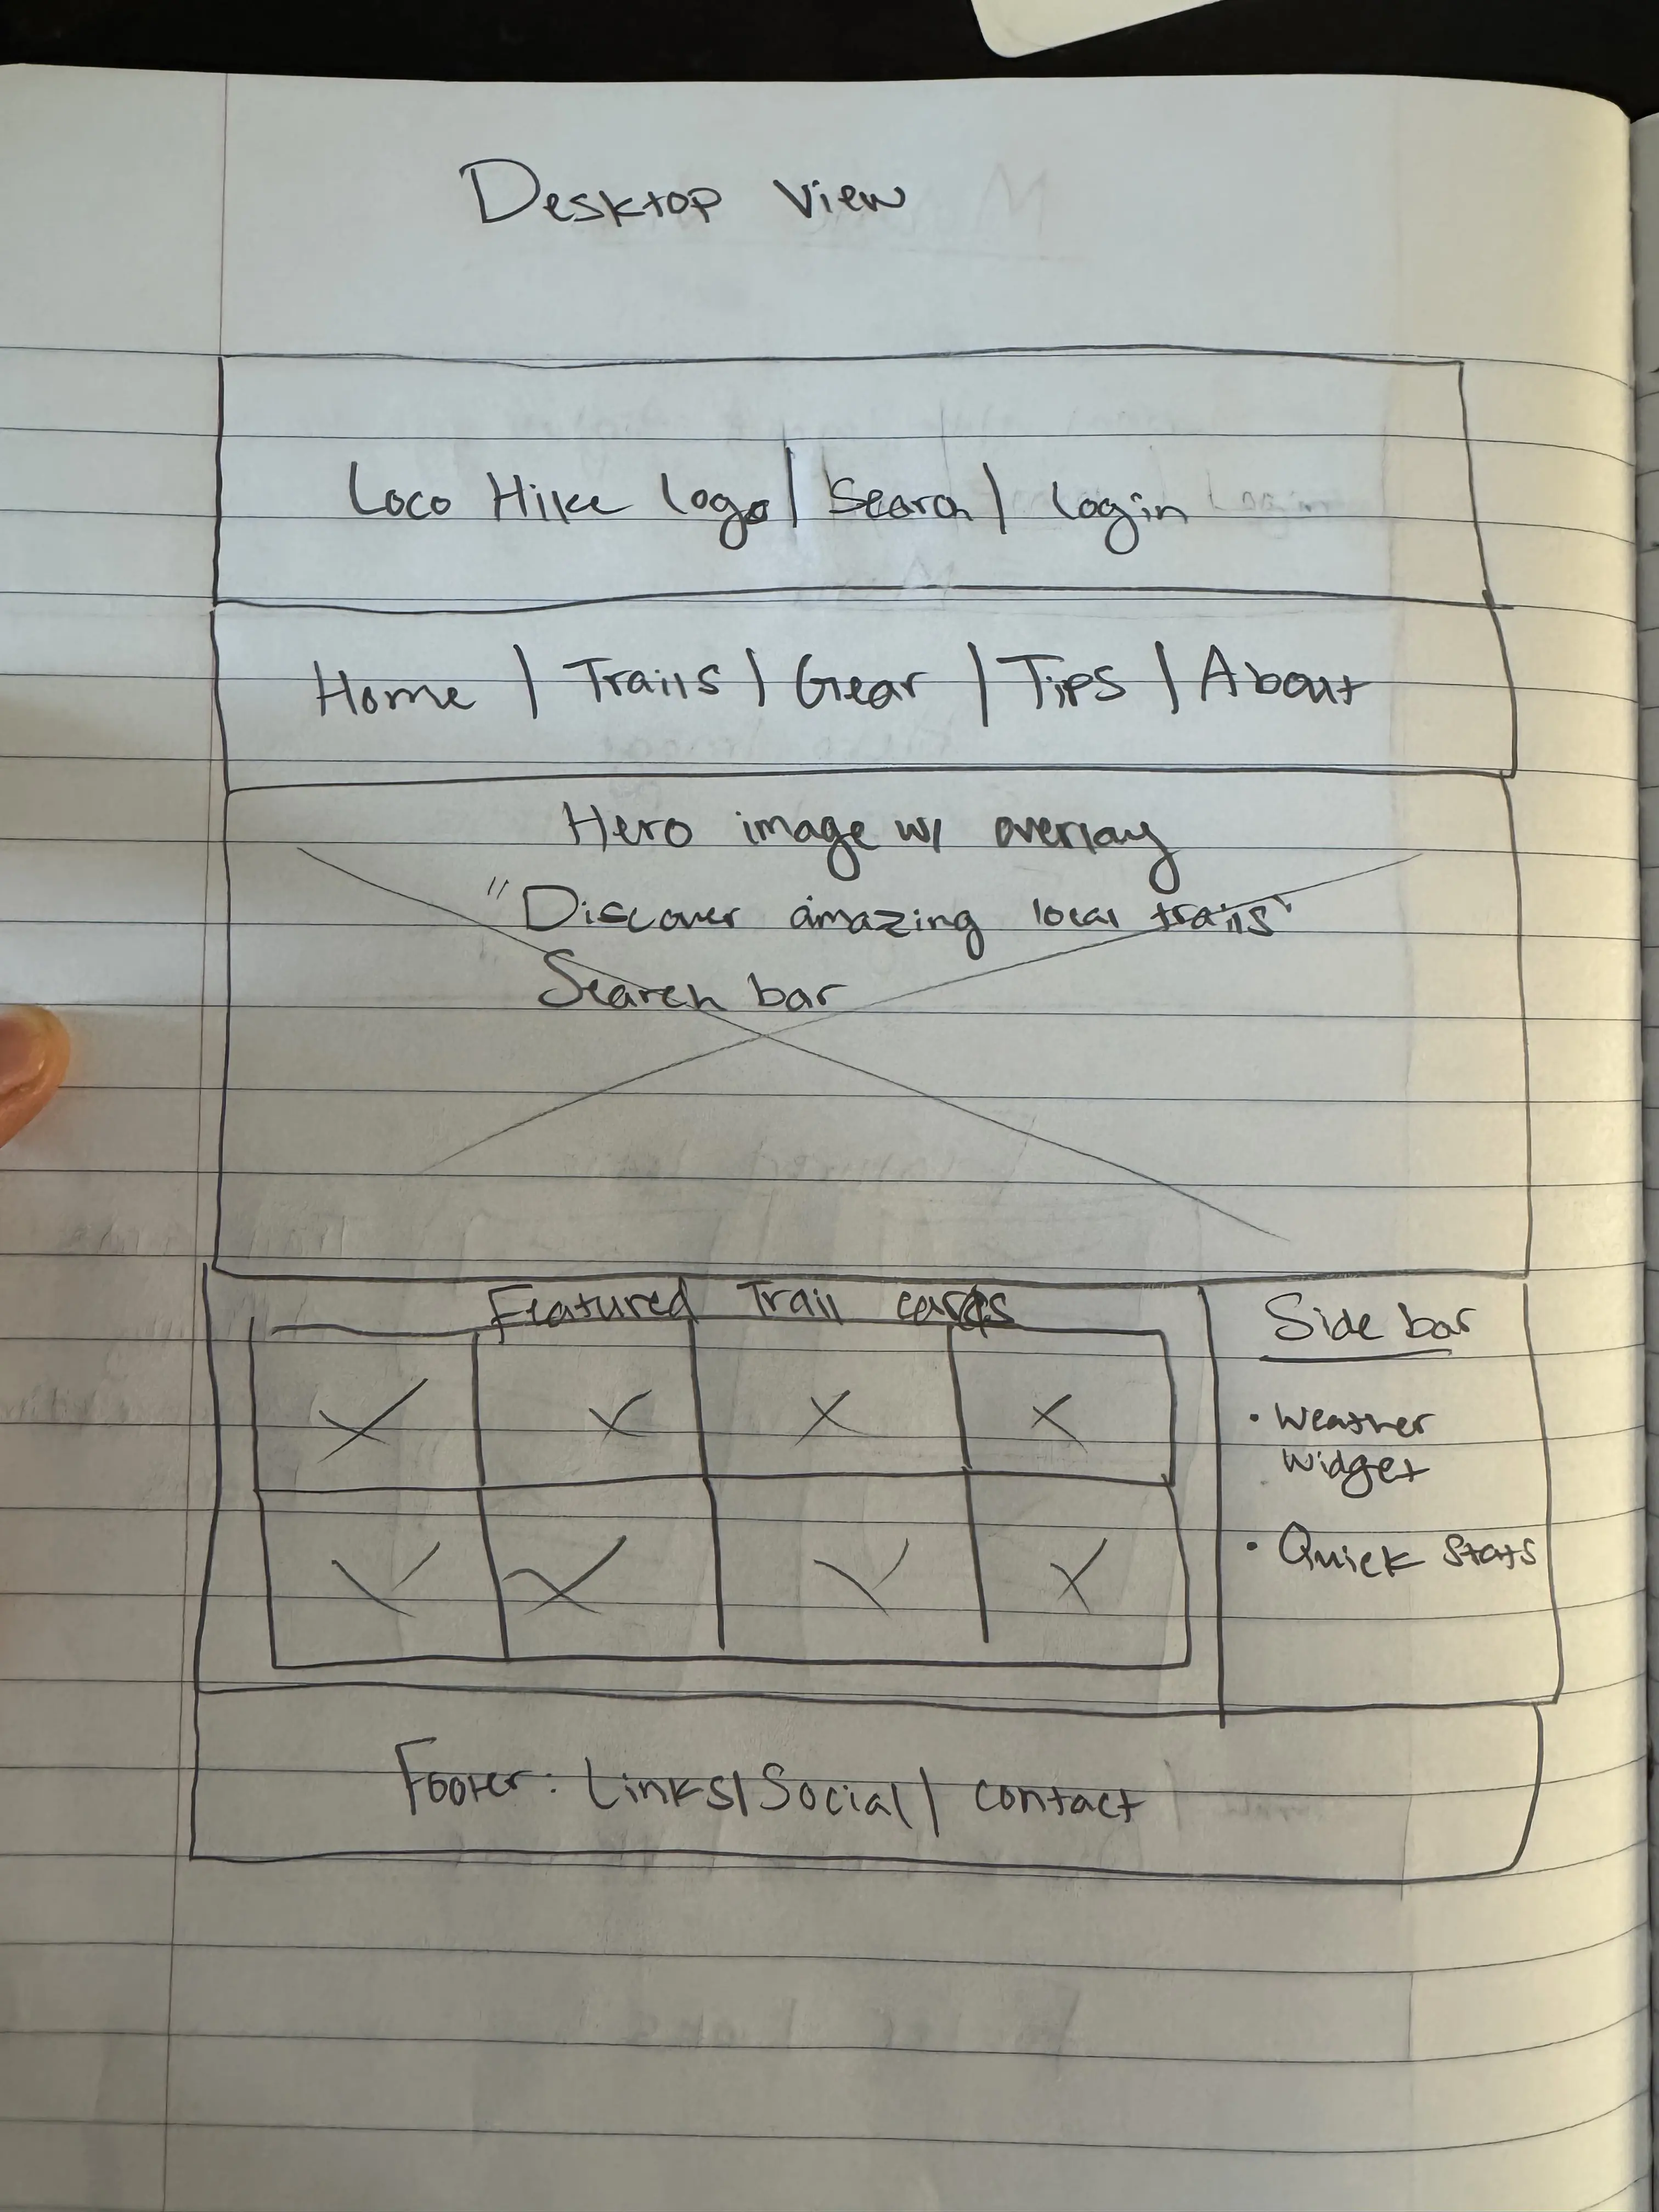 Desktop View
Loco Hike logo | Search | login
Home | Trails | Gear | Tips | About
Hero image w/ overlay
"Discover amazing local trails"
Search bar
Featured Trail cards
Side bar
• Weather
Widget
• Quick Stats
Footer: Links | Social | contact